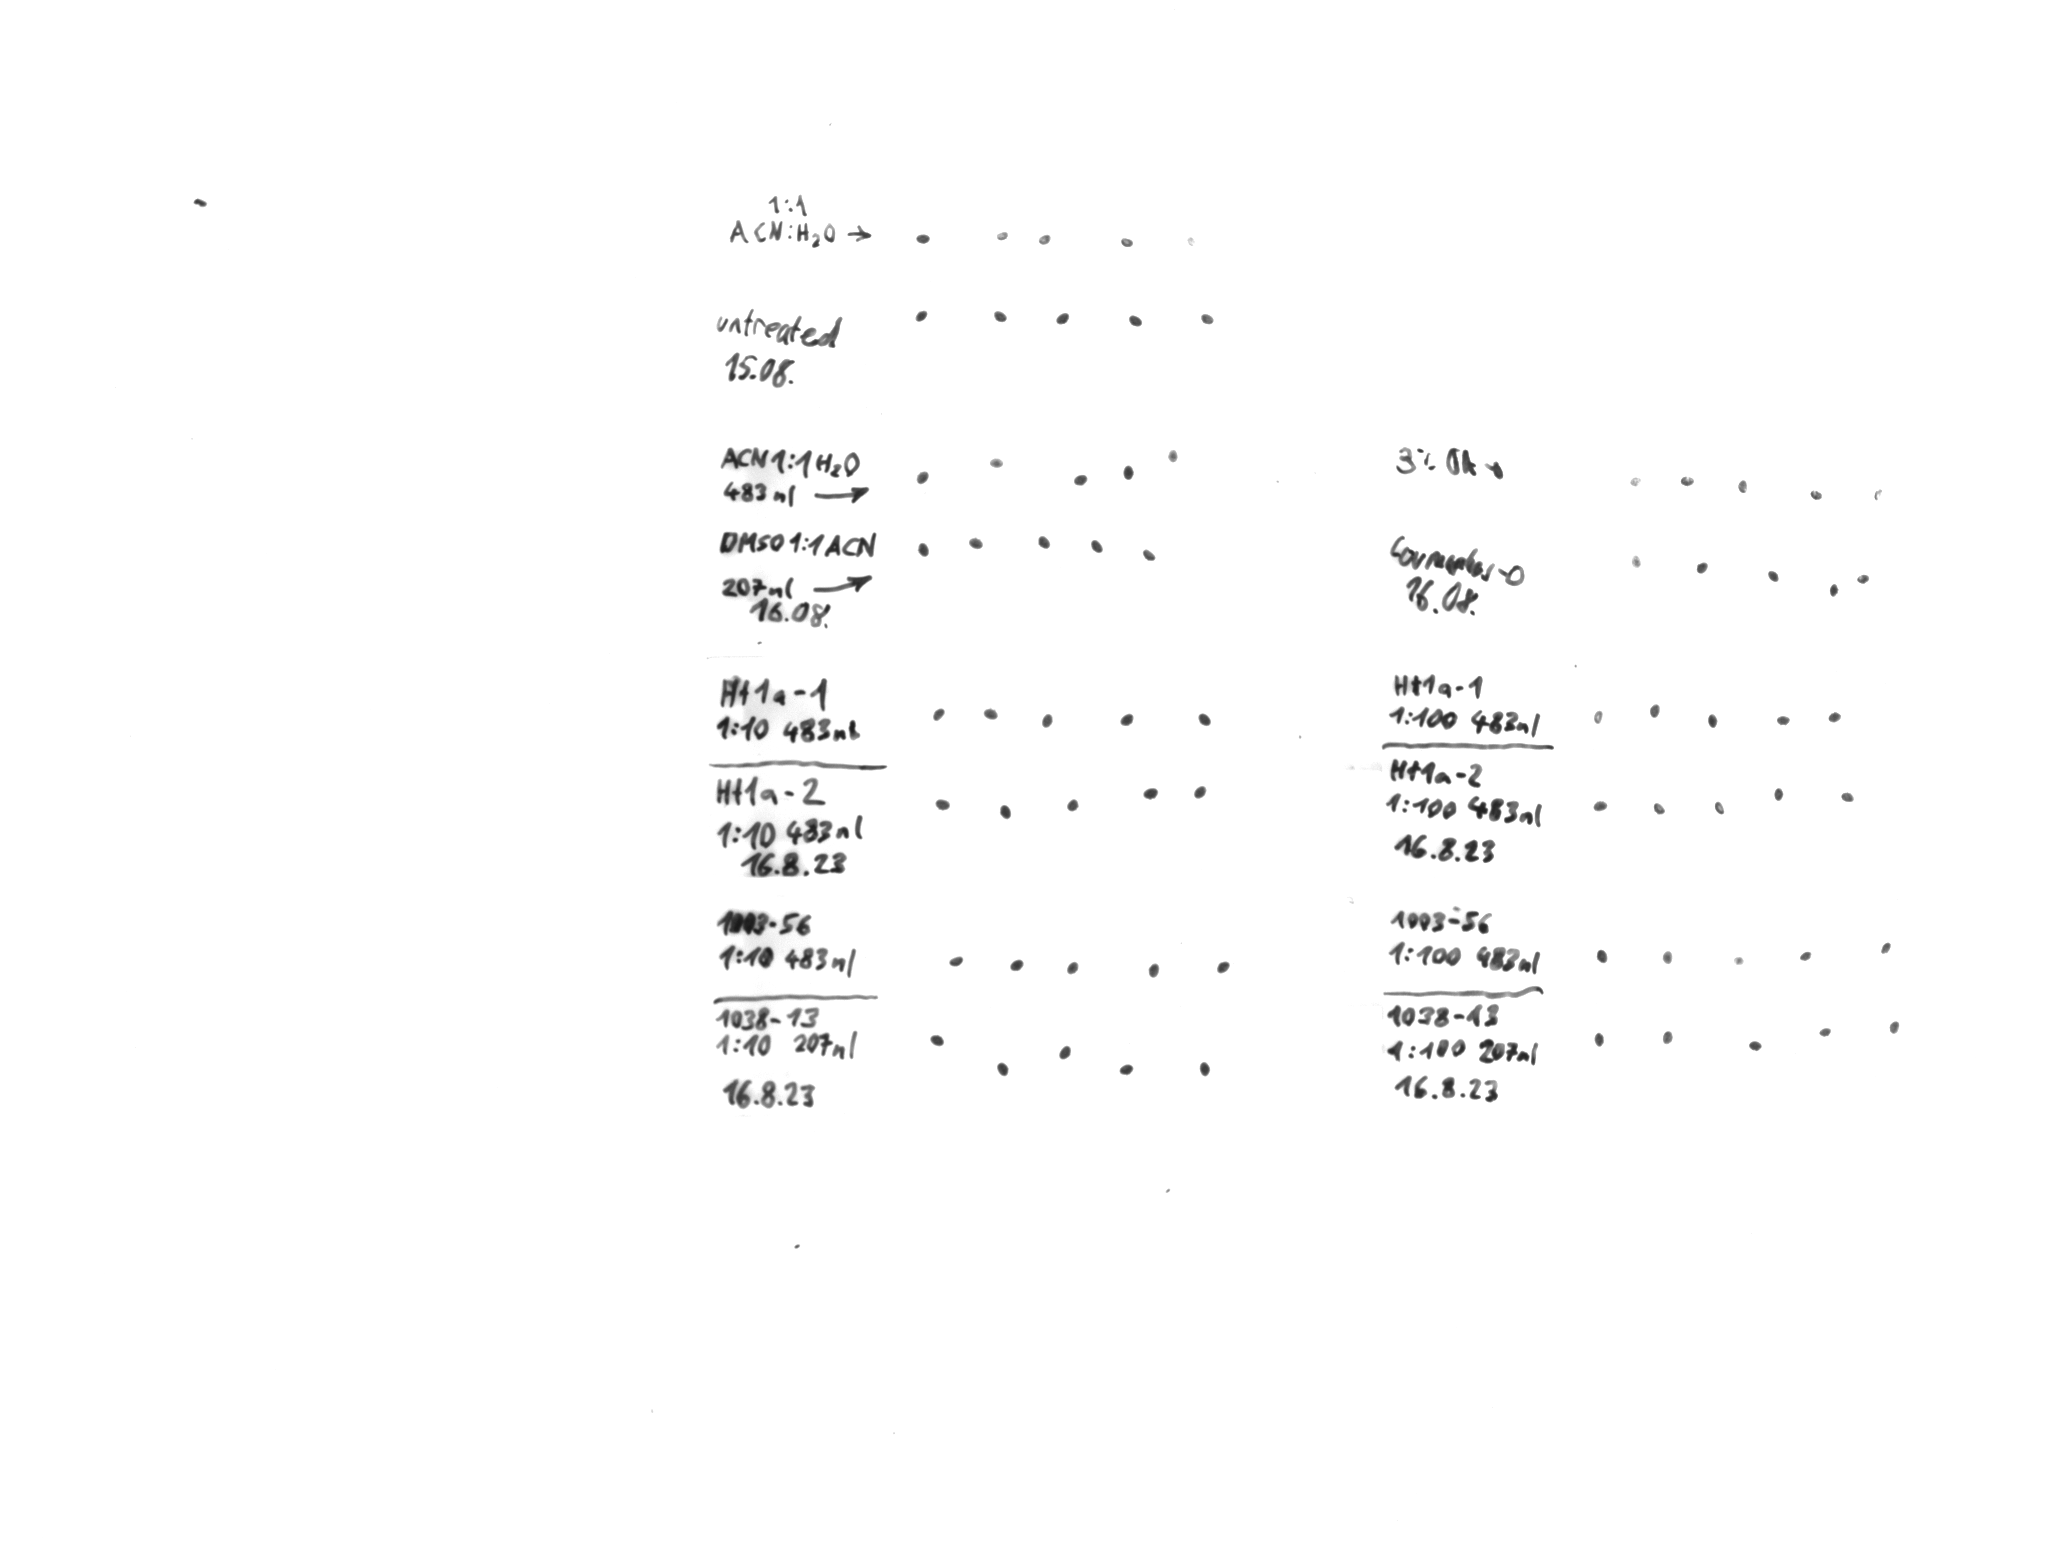 1:1
ACN:H₂O →
untreated
15.08.
ACN 1:1 H₂O
483 nl →
DMSO 1:1 ACN
207 nl →
16.08.
Ht1a-1
1:10 483nl
Ht1a-2
1:10 483nl
16.8.23
1003-56
1:10 483nl
1038-13
1:10 207nl
16.8.23
3%
16.08.
Ht1a-1
1:100 483nl
Ht1a-2
1:100 483nl
16.8.23
1003-56
1:100 483nl
1038-13
1:100 207nl
16.8.23